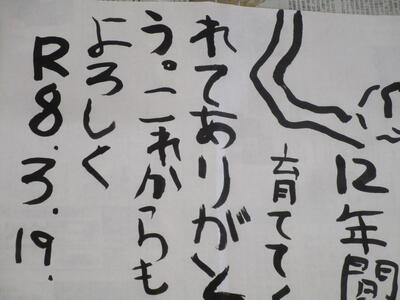 12年間
育てて
れてありがと
う。これからも
よろしく
R8.3.19.